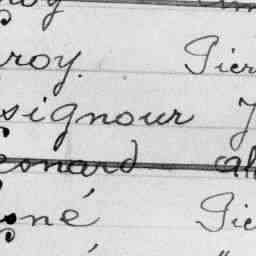 roy Pier
signour J
esnard
né Pie